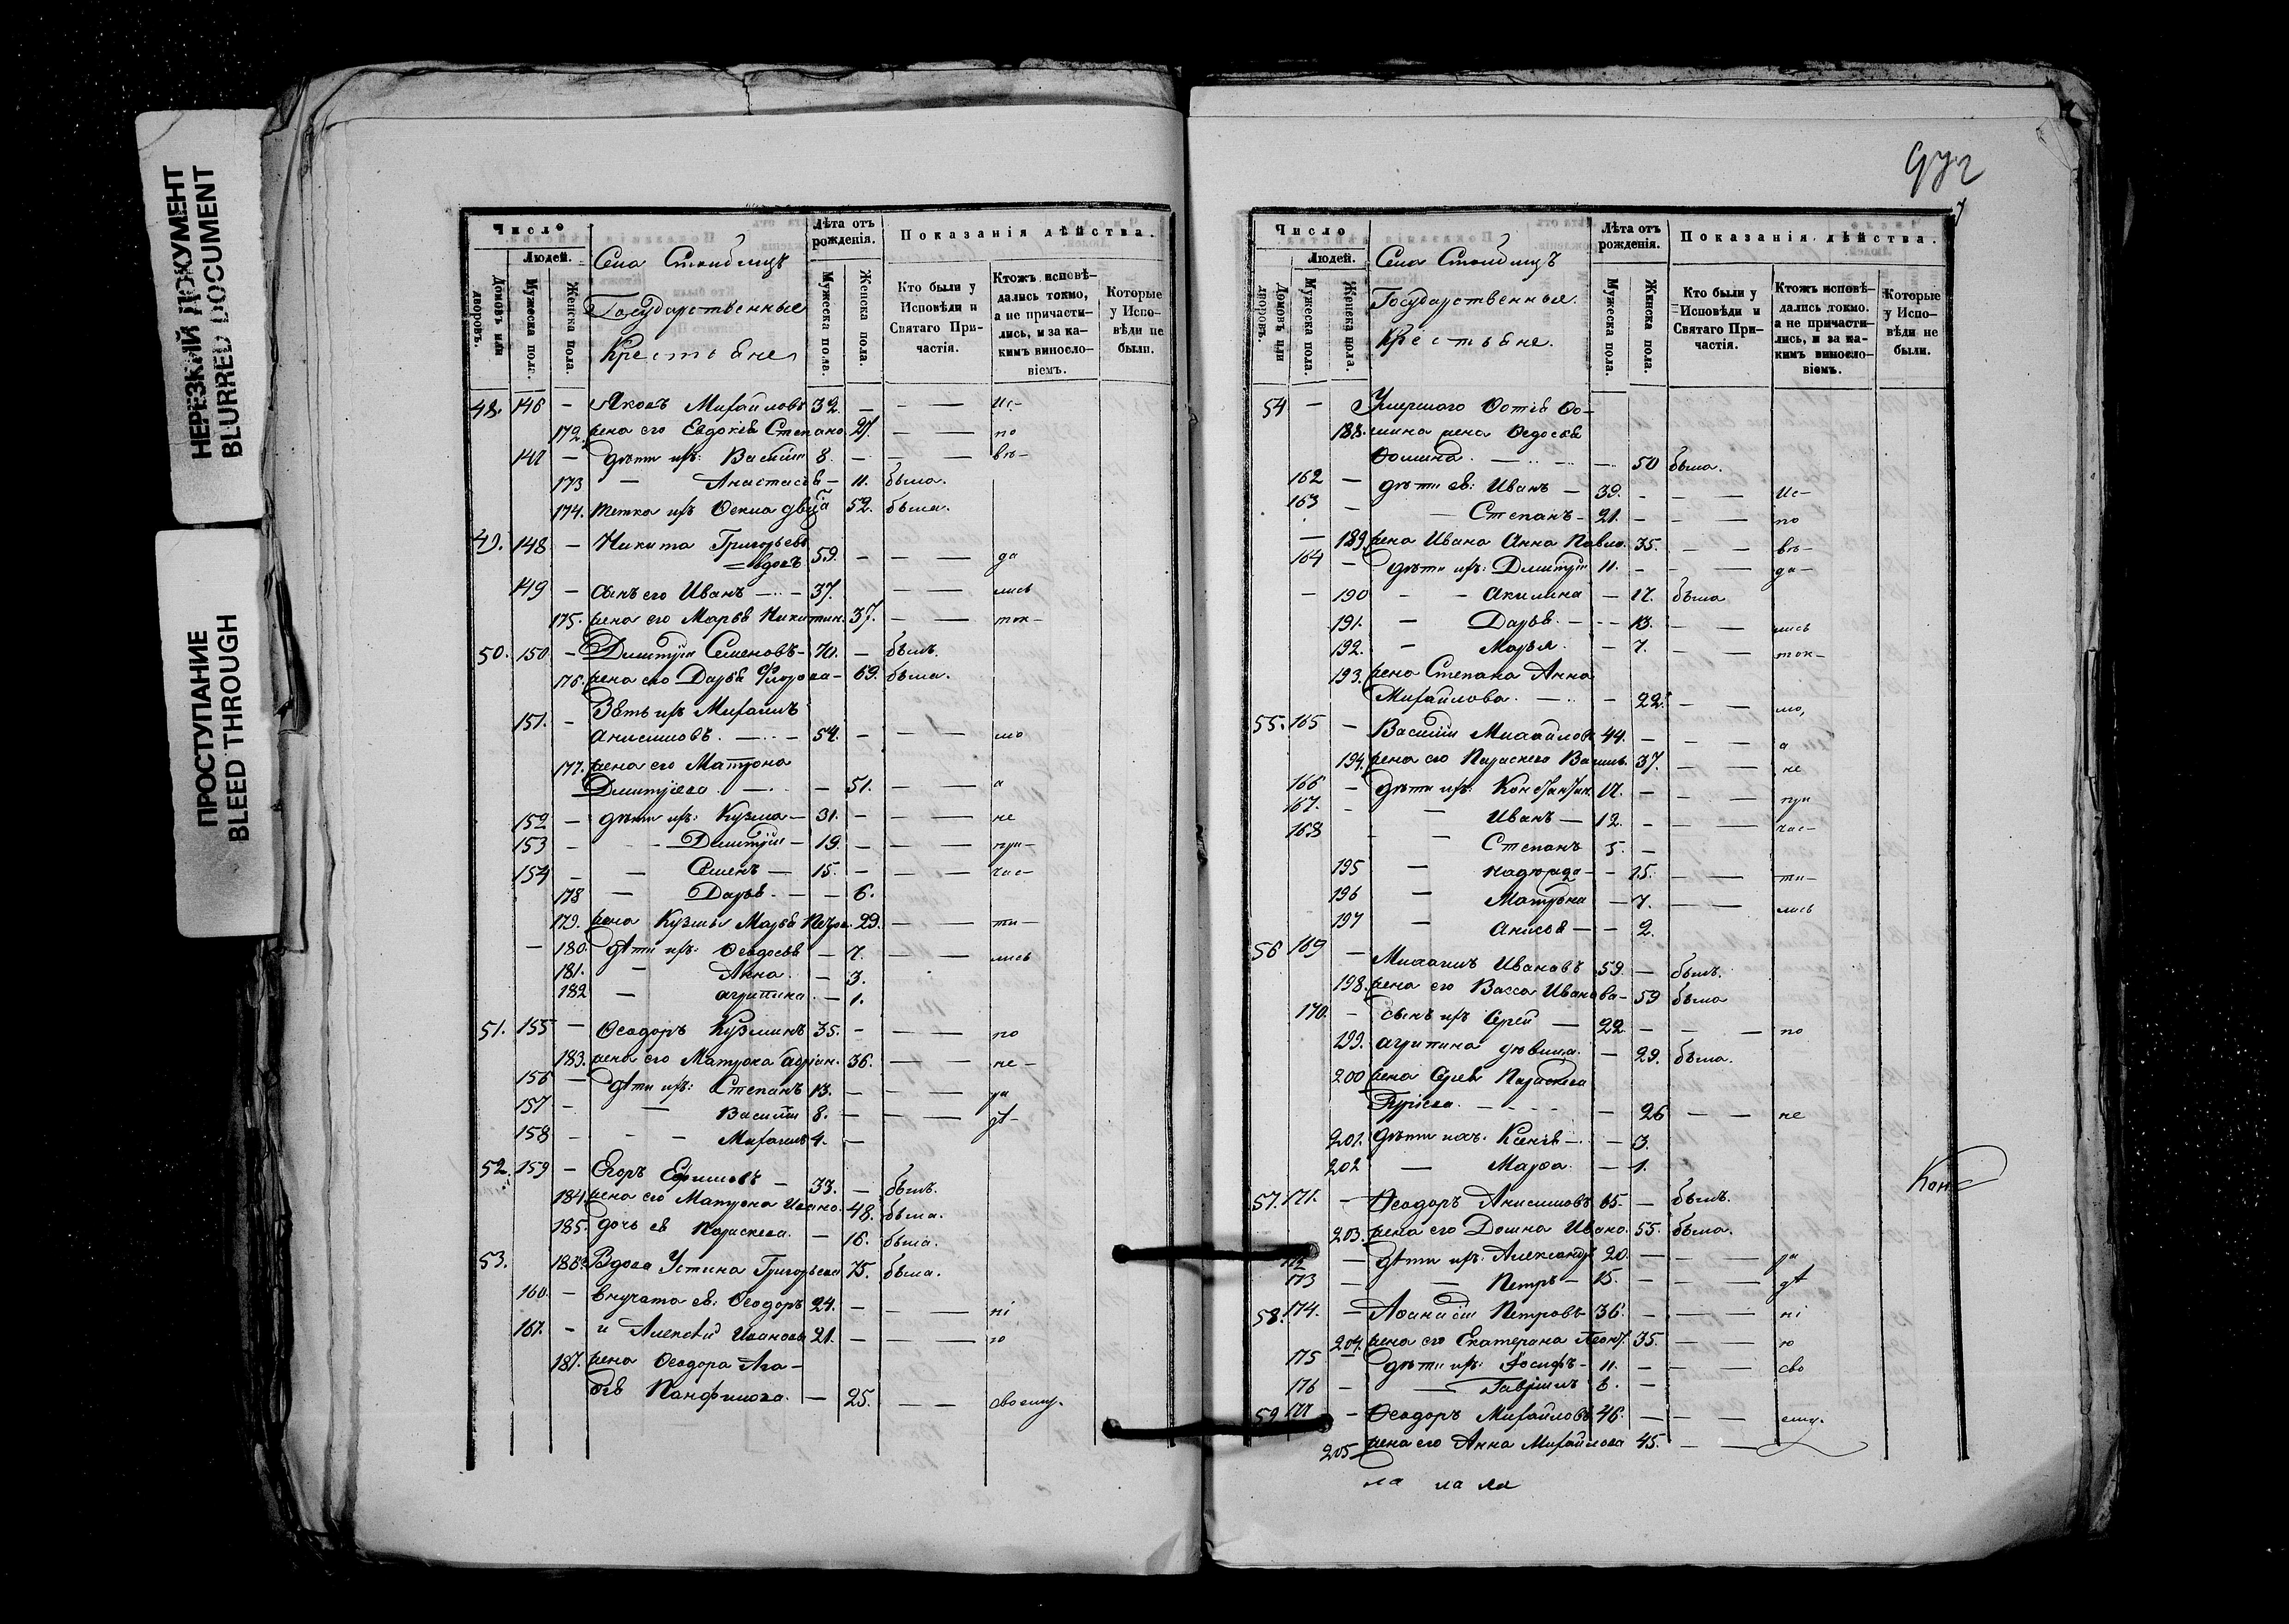 НЕРЕЗКИЙ ДОКУМЕНТ
BLURRED DOCUMENT
ПРОСТУПАНИЕ
BLEED THROUGH
Число
Людей.
Домовъ или дворовъ.
Мужеска пола.
Женска пола.
Села
Государственные
Крестьяне
Лѣта отъ рожденія.
Мужеска пола.
Женска пола.
Показанія дѣйства.
Кто были у Исповѣди и Святаго Причастія.
Ктожъ исповѣдались токмо, а не причастились, и за какимъ винословіемъ.
Которые у Исповѣди не были.
48. 146 — Яковъ Михайловъ 32. — — — Ис-
172. жена его Евдокія Степано. 27. — — по
147 — дѣти ихъ: Василій 8. — — — вѣ-
173 — Анастасія — 11. была.
174. тетка ихъ 52. была.
49. 148 — Никита Григорьевъ
= вдовъ 59. — — — да
149 — сынъ его Иванъ — 37. — — лись
175. жена его Марья Никитин. 37. — — ток-
50. 150 — Димитрій Семеновъ - 70. — былъ.
176. жена его Дарья — 69. была.
151. — Зять ихъ Михаилъ
Анисимовъ. — 54. — — — мо
177. жена его Матрона
Димитріева. — — 51. — — а
152 — дѣти ихъ: Кузма — 31. — — — не
153 — — Димитрій — 19. — — — при-
154 — — Семенъ — 15. — — — час-
178 — Дарья — — 6.
179. жена Кузмы Марья Петро. 29. — — ти-
— 180. дѣти ихъ: Ѳеодосья — 7. — — лись
181. — Анна. — 3.
182 — агрипина. — 1.
51. 155 — Ѳеодоръ Кузминъ 35. — — — по
183. жена его Матрона адріан. 36. — — не-
156 — дѣти ихъ: Степанъ 13. — — — ра
157 — — Василій 8. — — — дѣ-
158 — — Михаилъ 4. —
52. 159 — Егоръ Ефимовъ — 33. — былъ.
184. жена его Матрона Ивано. 48. была.
185. дочь ея Параскева. — 16. была.
53. 186. Вдова Устина Григорьева 75. была.
160. — внучата ея: Ѳеодоръ 24. — — — ні
161. — и Алексѣй Иванова 21. — — — ю
187. жена Ѳеодора Ага-
ѳія Панфилова. — 25. — — своему.
Число
Людей.
Домовъ или дворовъ.
Мужеска пола.
Женска пола.
Села
Государственные
Крестьяне.
Лѣта отъ рожденія.
Мужеска пола.
Женска пола.
Показанія дѣйства.
Кто были у Исповѣди и Святаго Причастія.
Ктожъ исповѣдались токмо, а не причастились, и за какимъ винословіемъ.
Которые у Исповѣди не были.
54 — Умершаго Ѳотія Ѳо-
188. мина жена Ѳедосья
Ѳомина. — — 50 была.
162 — дѣти ея: Иванъ — 39. — — — Ис-
163 — — Степанъ — 21. — — — по
— 189. жена Ивана Анна Павло. 35. — — вѣ-
164 — дѣти ихъ: Димитрій 11. — — — да-
— 190 — Акилина — 17. была
191. — Дарья. — 13. — — лись
192. — Марья. — 7. — — ток-
193. жена Степана Анна
Михайлова. — — 22. — — мо,
55. 165 — Василій Михайлов 44. — — — а
194. жена его Параскева Василь. 37. — — не
166 — дѣти ихъ: Константин. 17. — — — при
167. — — Иванъ — 12. — — — час-
168 — — Степанъ 5. —
195 — — 15. — — ти-
196 — Матрона — 7. — — лись
197 — Анисья — 2.
56 169 — Михаилъ Ивановъ 59. — былъ.
198. жена его Васса Иванова — 59 была
170. — сынъ ихъ Сергѣй — 22. — — — по
199. агрипина дѣвица. — 29. была.
200 жена Сергѣя Параскева
— 26 — — не
201. дѣти ихъ: Ксенія — — 3.
202 — Марѳа. — 1.
57. 171. — Ѳеодоръ Анисимовъ 65. — былъ.
203. жена его Домна Ивано. 55. была.
172 — дѣти ихъ: Александръ 20. — — ра
173 — — Петръ — 15. — — — дѣ
58. 174. — Аѳанасій Петровъ 36. — — — ні
204. жена его Екатерина Леонт. 35. — — ю
175 — дѣти ихъ: Іосифъ — 11. — — — сво
176 — — Гавріилъ 6. —
59. 177 — Ѳеодоръ Михайловъ 46. — — — ему.
205 жена его Анна Михайлова 45. — —
ла ла ла